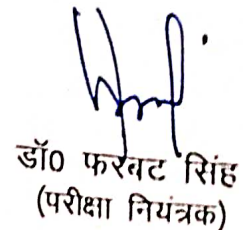 डॉ0 फरवट सिंह
(परीक्षा नियंत्रक)